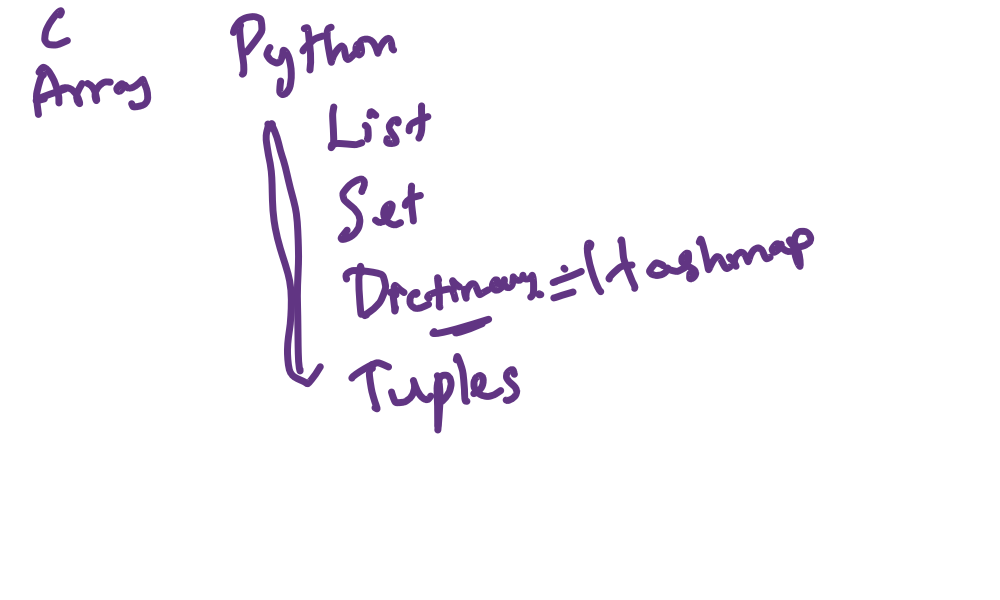 C
Array
Python
List
Set
Dictinary = Hashmap
Tuples